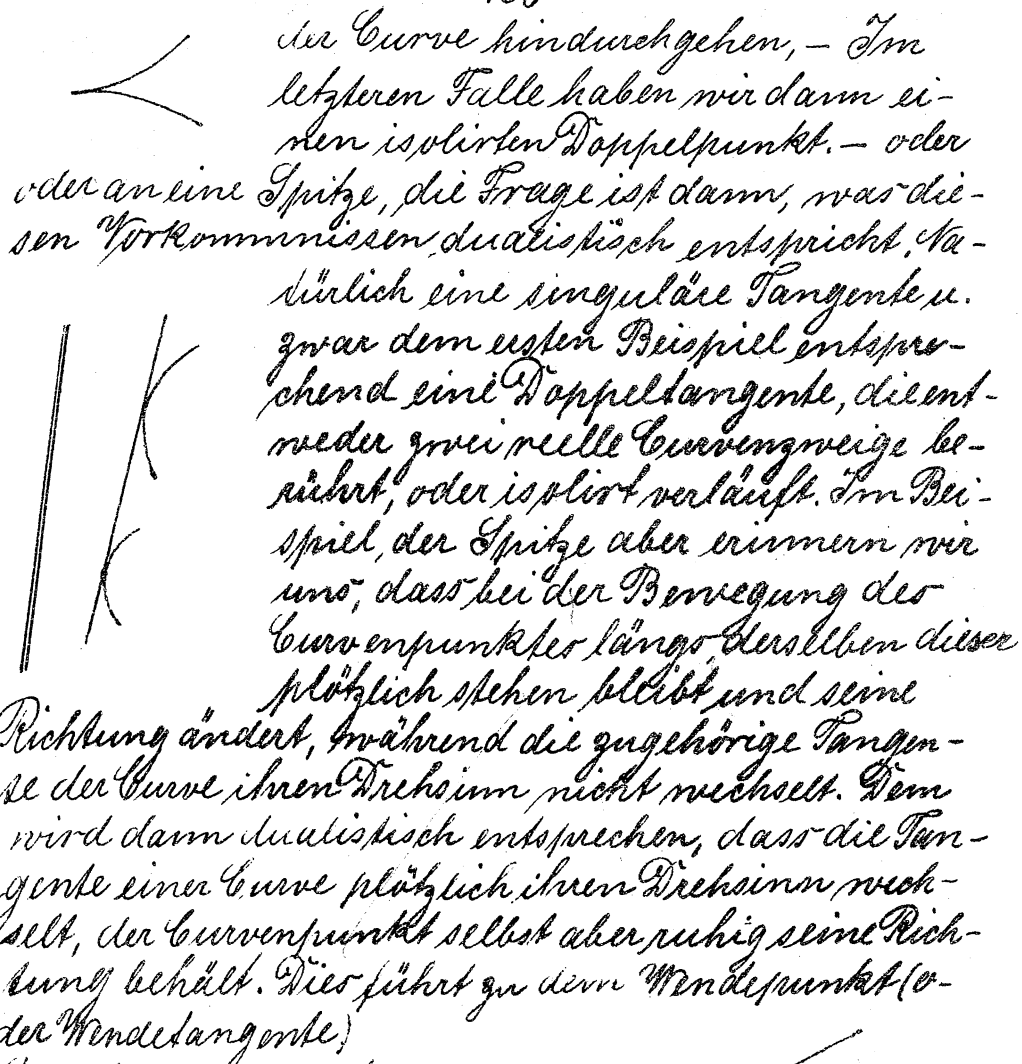 der Curve hindurchgehen, – Im
letzteren Falle haben wir dann ei-
nen isolirten Doppelpunkt. – oder
oder an eine Spitze, die Frage ist dann, was die-
sen Vorkommnissen dualistisch entspricht. Na-
türlich eine singuläre Tangente u.
zwar dem ersten Beispiel entspre-
chend eine Doppeltangente, die ent-
weder zwei reelle Curvenzweige be-
rührt, oder isolirt verläuft. Im Bei-
spiel, der Spitze aber erinnern wir
uns, dass bei der Bewegung des
Curvenpunktes längs derselben dieser
plötzlich stehen bleibt und seine
Richtung ändert, während die zugehörige Tangen-
te der Curve ihren Drehsinn nicht wechselt. Dem
wird dann dualistisch entsprechen, dass die Tan-
gente einer Curve plötzlich ihren Drehsinn wech-
selt, der Curvenpunkt selbst aber ruhig seine Rich-
tung behält. Dies führt zu dem Wendepunkt (o-
der Wendetangente)